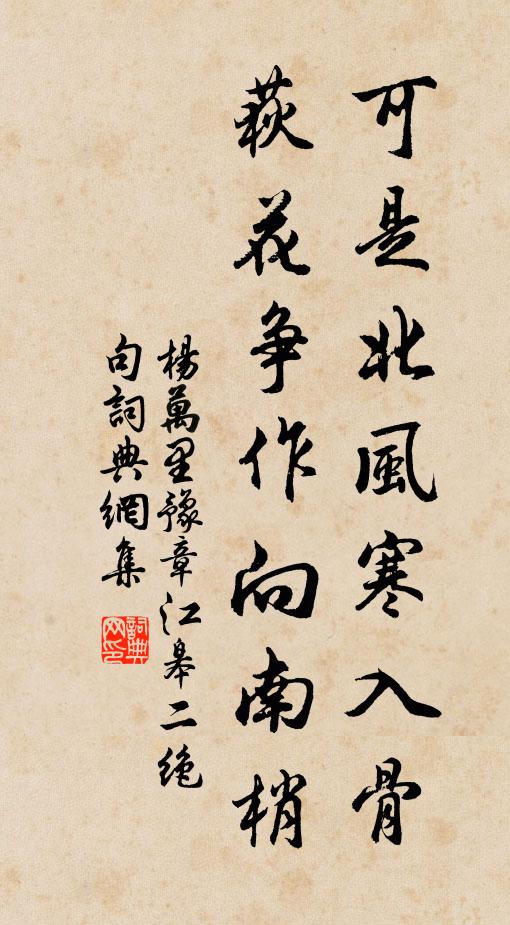 可是北風寒入骨
荻花争作向南梢
楊萬里豫章江皋二绝
句詞典網集
詞典网印